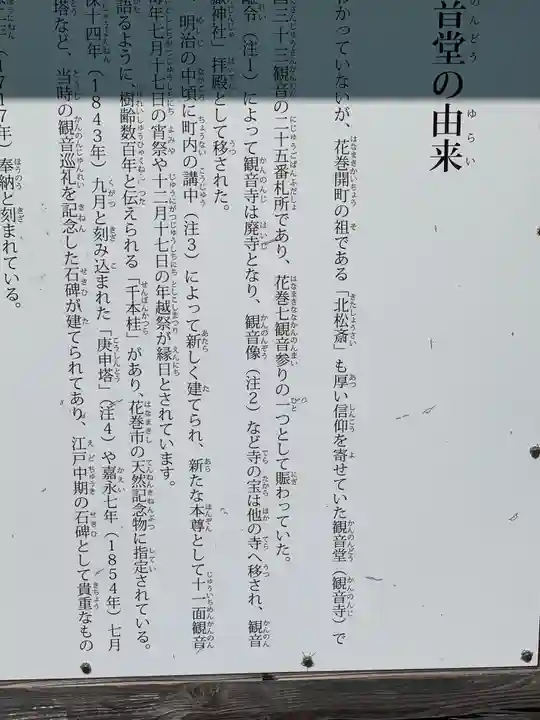 音堂の由来
かっていないが、花巻開町の祖である「北松斎」も厚い信仰を寄せていた観音堂（観音寺）で
三十三観音の二十五番札所であり、花巻七観音参りの一つとして賑わっていた。
離令（注1）によって観音寺は廃寺となり、観音像（注2）など寺の宝は他の寺へ移され、観音
神社」拝殿として移された。
明治の中頃に町内の講中（注3）によって新しく建てられ、新たな本尊として十一面観音
年七月十七日の宵祭や十二月十七日の年越祭が縁日とされています。
語るように、樹齢数百年と伝えられる「千本桂」があり、花巻市の天然記念物に指定されている。
保十四年（1843年）九月と刻み込まれた「庚申塔」（注4）や嘉永七年（1854年）七月
塔など、当時の観音巡礼を記念した石碑が建てられてあり、江戸中期の石碑として貴重なもの
（1717年）奉納と刻まれている。